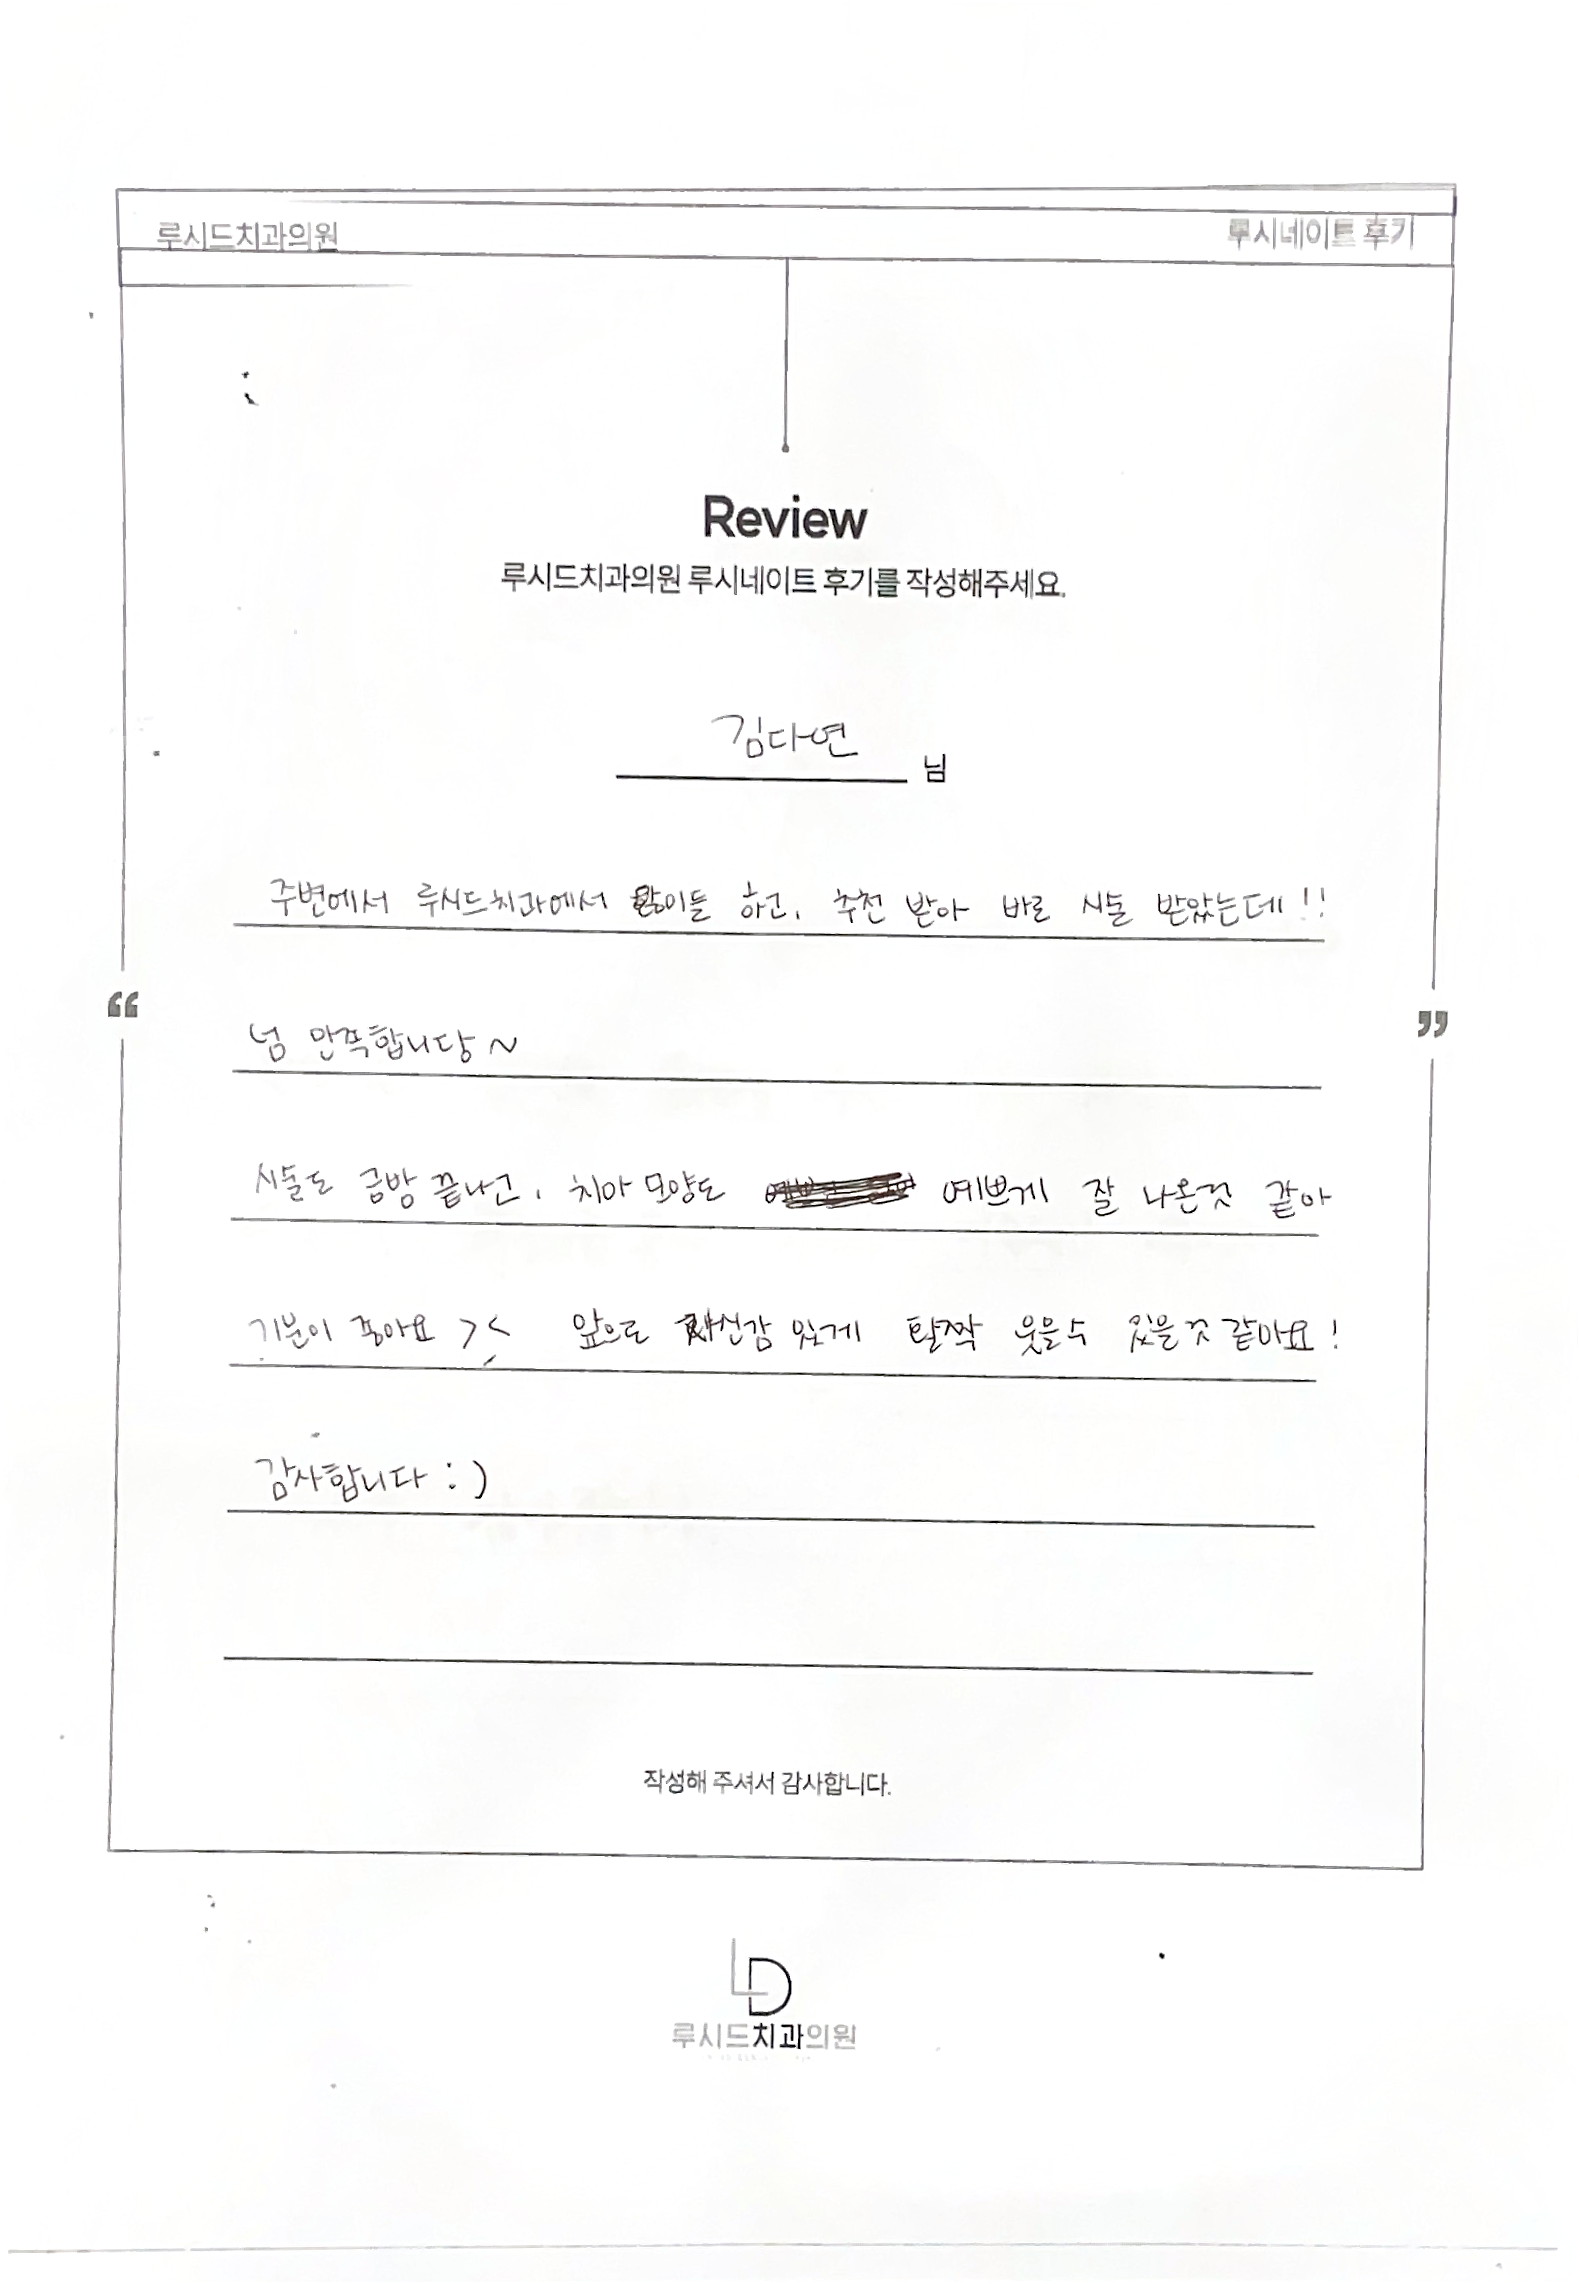 루시드치과의원
루시네이트 후기
Review
루시드치과의원 루시네이트 후기를 작성해주세요.
김다연 님
주변에서 루시드치과에서 많이들 하고, 추천 받아 바로 시술 받았는데!!
“ ”
넘 만족합니당~
시술도 금방 끝나고, 치아 모양도 예쁘게 잘 나온것 같아
기분이 좋아요 >< 앞으로 자신감 있게 활짝 웃을수 있을것 같아요!
감사합니다 :)
작성해 주셔서 감사합니다.
LD
루시드치과의원